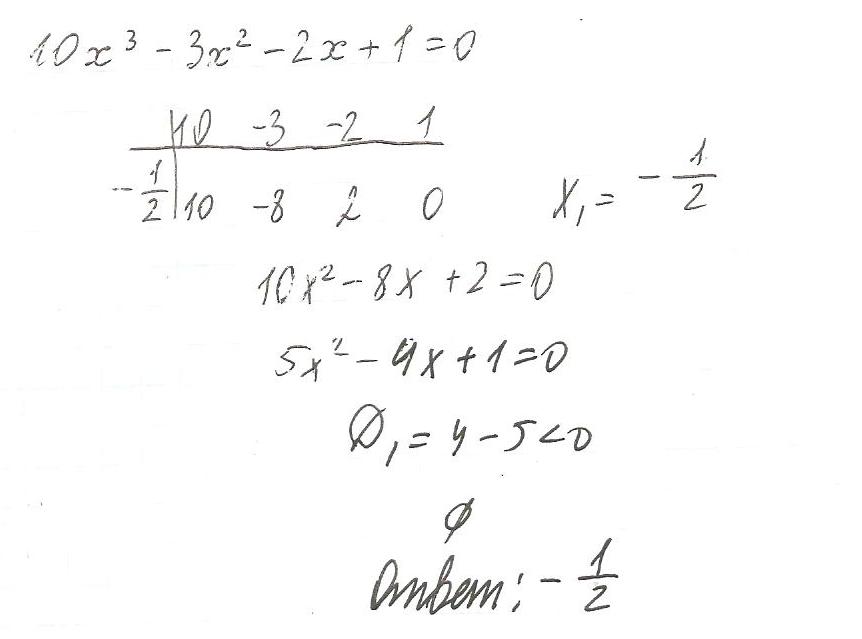 10x³ - 3x² - 2x + 1 = 0
10 -3 -2 1
-1/2 | 10 -8 2 0
x₁ = -1/2
10x² - 8x + 2 = 0
5x² - 4x + 1 = 0
D₁ = 4 - 5 < 0
∅
Ответ: -1/2